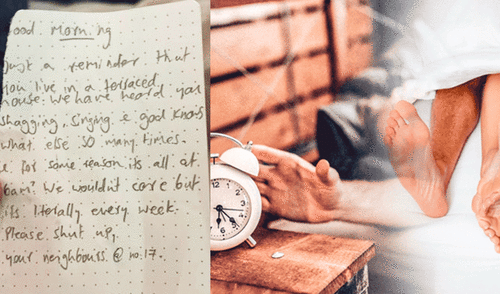 Good Morning
Just a reminder that
you live in a terraced
house. We have heard you
shagging, singing & good knows
what else SO many times.
& for some reason its all at
6am? We wouldn't care but
its literally every week.
Please shut up,
your neighbours @ no.17.